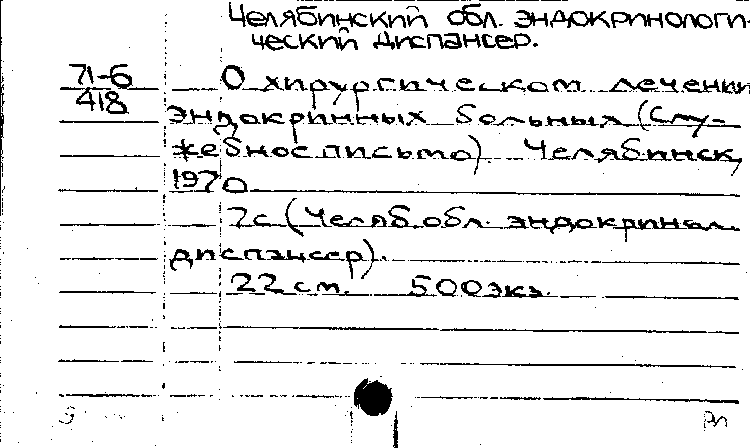 Челябинский обл. эндокринологи-
ческий диспансер.
71-6
418
О хирургическом лечении
эндокринных больных (Слу-
жебное письмо). Челябинск,
1970
7с (Челяб. обл. эндокринол.
диспансер).
22 см. 500 экз.